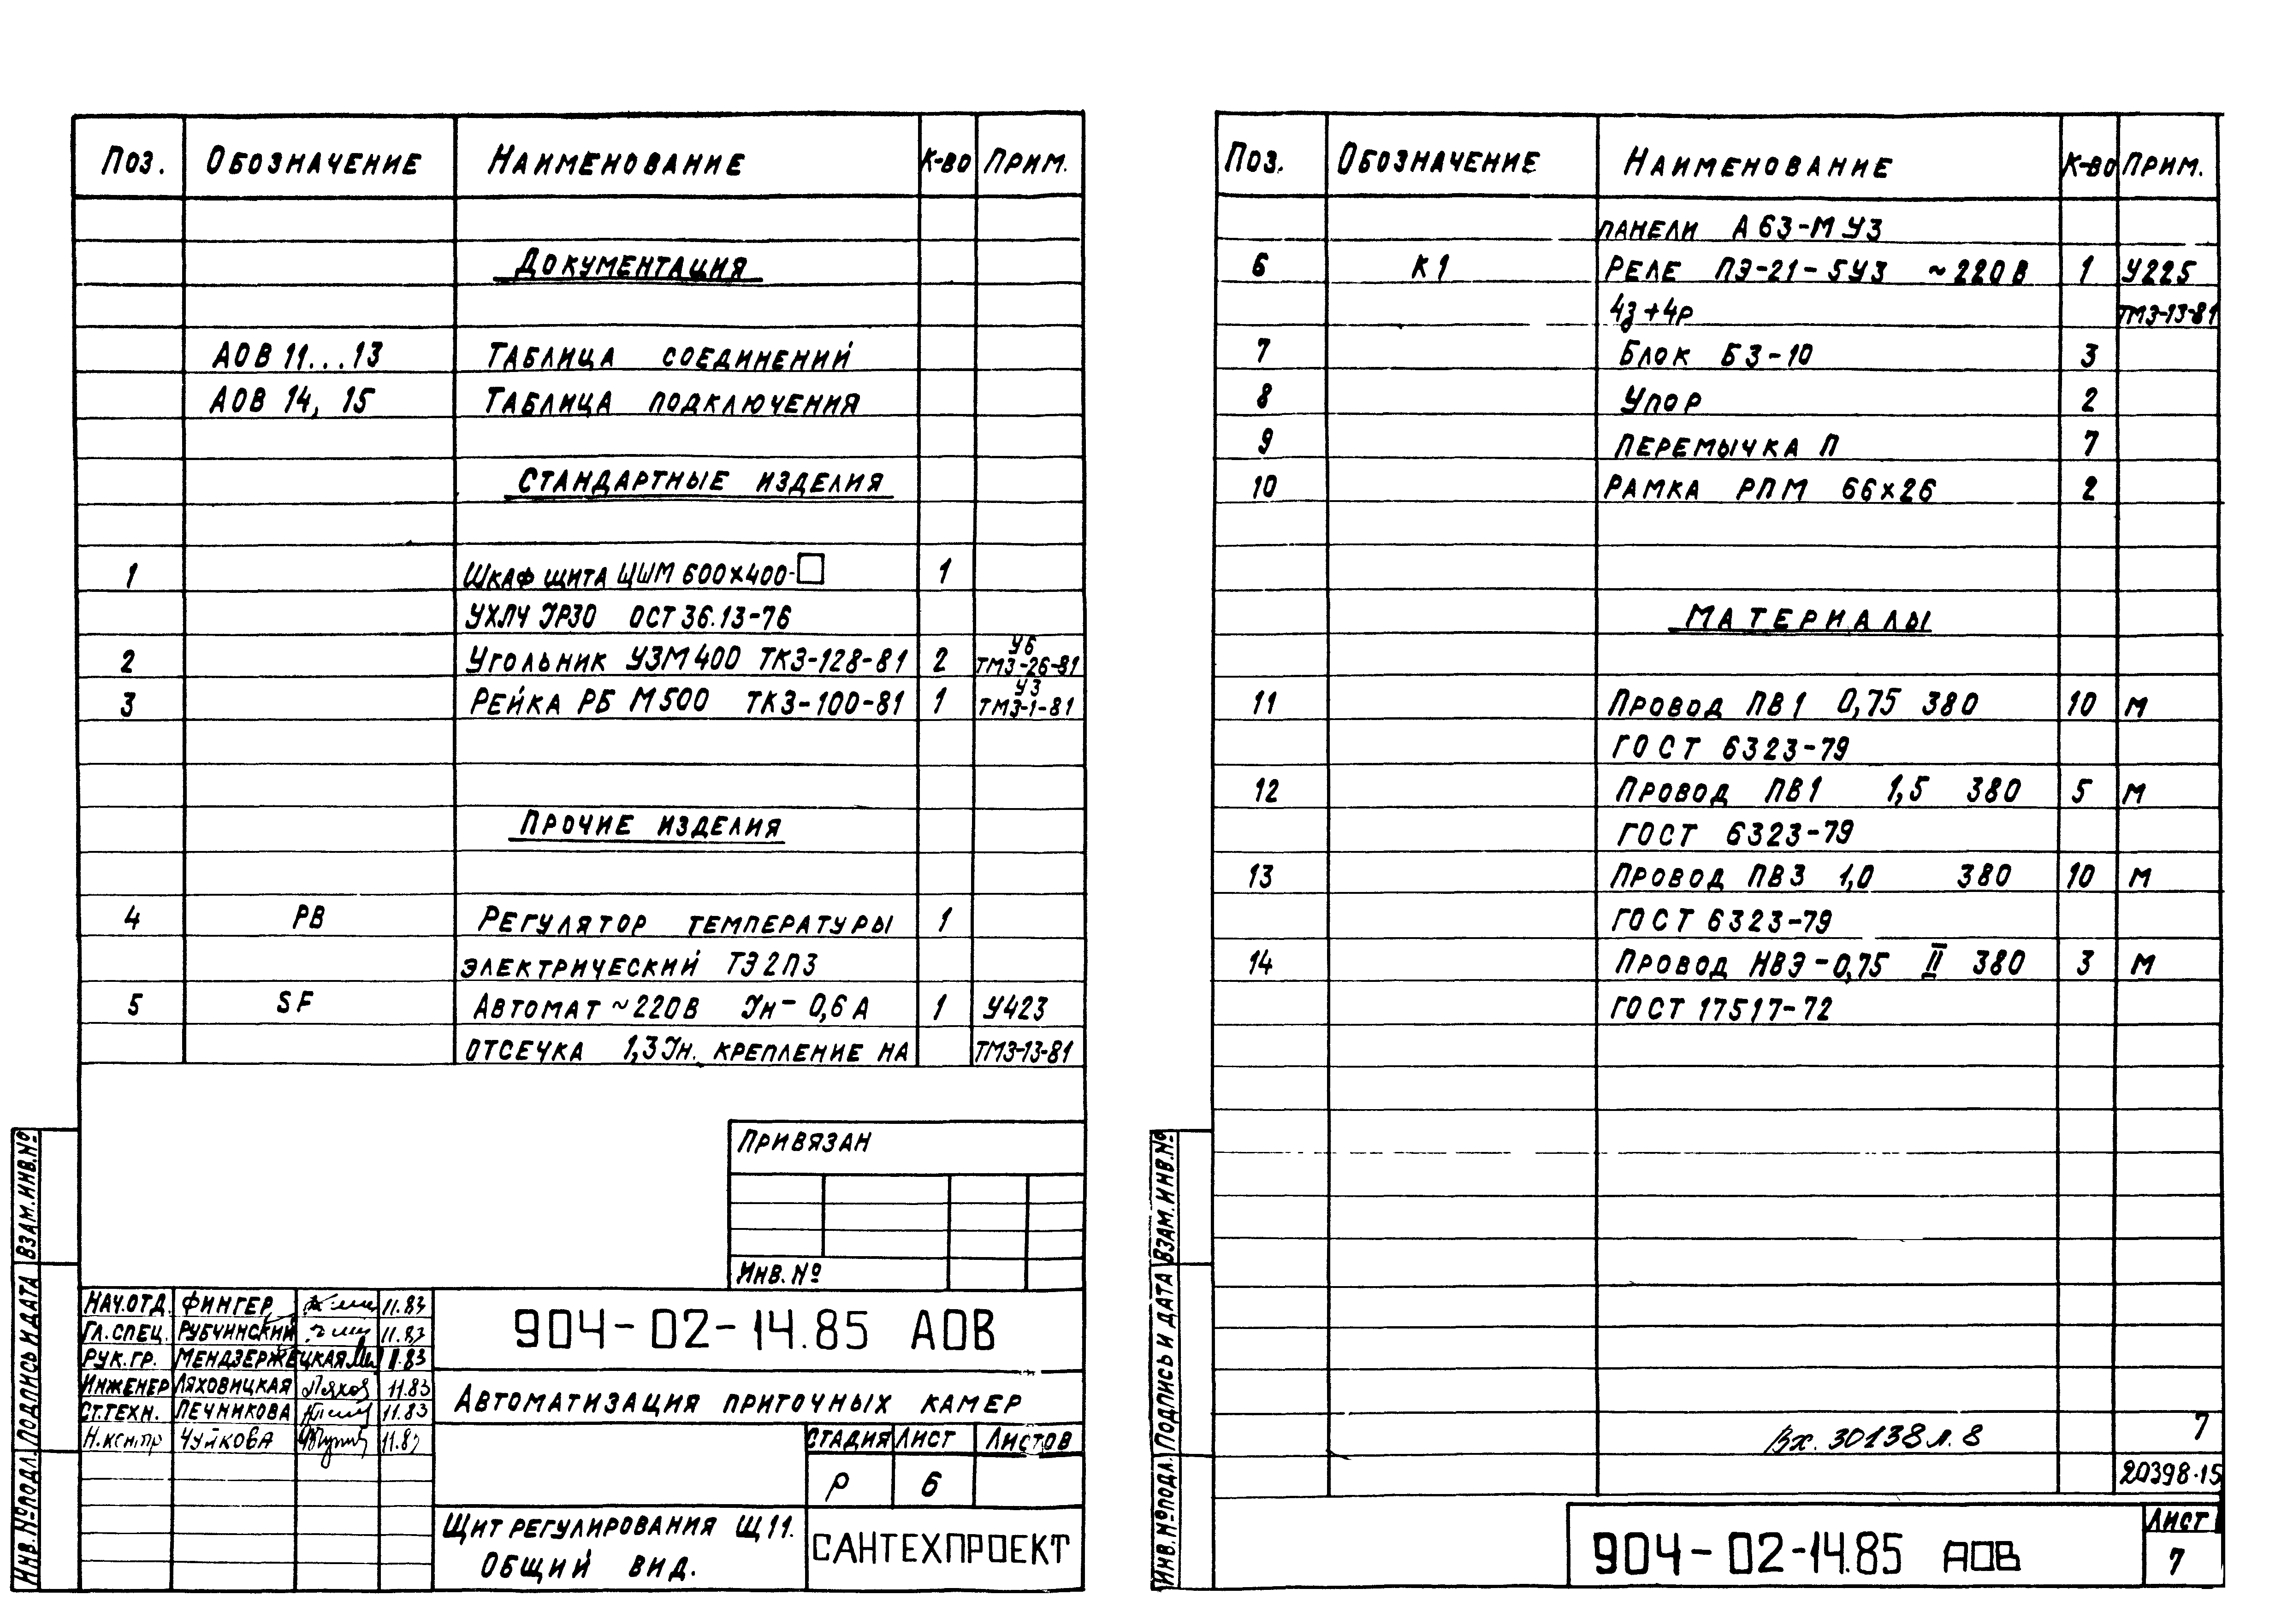 Поз. Обозначение Наименование К-во Прим.
Документация
АОВ 11...13 Таблица соединений
АОВ 14, 15 Таблица подключения
Стандартные изделия
1 Шкаф щита ЩШМ 600х400-□ 1
УХЛ4 IР30 ОСТ 36.13-76
2 Угольник УЗМ 400 ТКЗ-128-81 2 У6 ТМЗ-26-81
3 Рейка РБ М500 ТКЗ-100-81 1 У3 ТМЗ-1-81
Прочие изделия
4 РВ Регулятор температуры 1
электрический ТЭ2П3
5 SF Автомат ~220В Iн- 0,6А 1 У423
отсечка 1,3Iн. крепление на ТМЗ-13-81
Привязан
Инв. №
Взам. инв. №
Подпись и дата
Инв. № подл.
Нач. отд. Фингер 11.83
Гл. спец. Рубчинский 11.83
Рук. гр. Мендзержецкая 11.83
Инженер Ляховицкая 11.83
Ст. техн. Печникова 11.83
Н. контр Чуйкова 11.83
904-02-14.85 АОВ
Автоматизация приточных камер
Стадия Лист Листов
Р 6
Щит регулирования Щ11.
Общий вид.
САНТЕХПРОЕКТ
Поз. Обозначение Наименование К-во Прим.
панели А63-МУ3
6 К1 Реле ПЭ-21-5У3 ~220В 1 У225
4з+4р ТМЗ-13-81
7 Блок БЗ-10 3
8 Упор 2
9 Перемычка П 7
10 Рамка РПМ 66х26 2
Материалы
11 Провод ПВ1 0,75 380 10 м
ГОСТ 6323-79
12 Провод ПВ1 1,5 380 5 м
ГОСТ 6323-79
13 Провод ПВ3 1,0 380 10 м
ГОСТ 6323-79
14 Провод НВЭ-0,75 II 380 3 м
ГОСТ 17517-72
Взам. инв. №
Подпись и дата
Инв. № подл.
Вх. 30138 л. 8
7
20398-15
904-02-14.85 АОВ
Лист
7